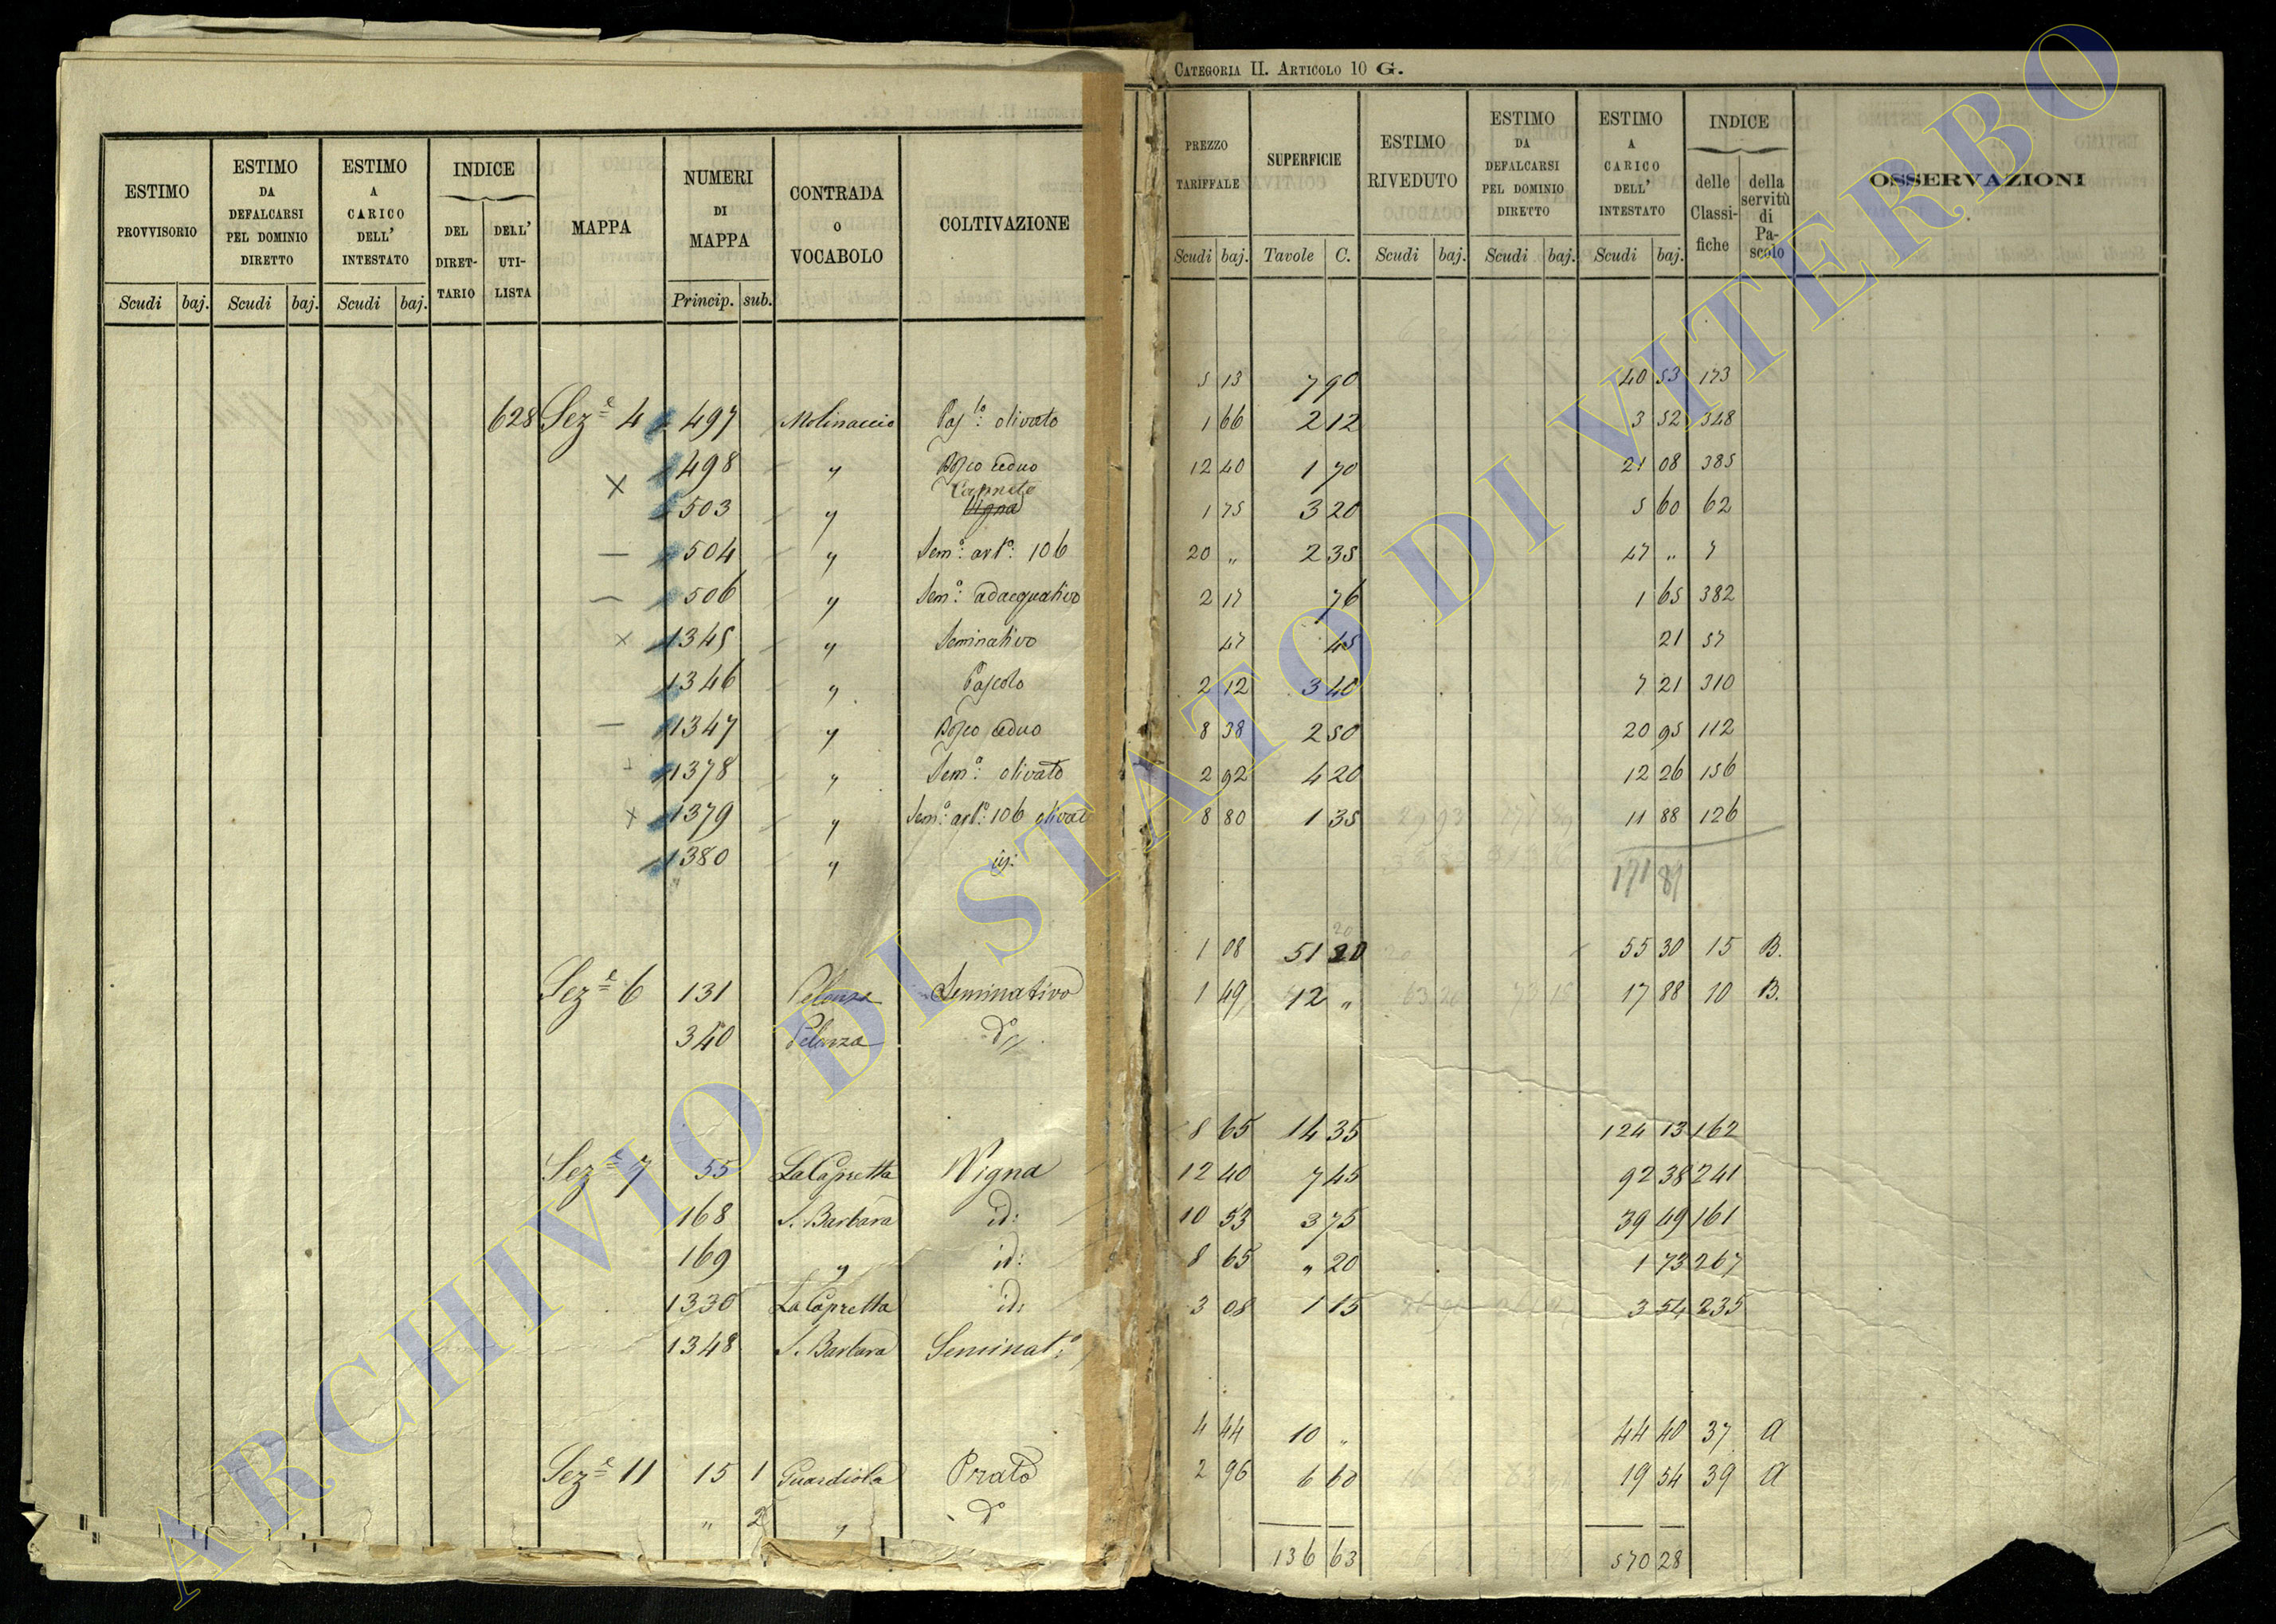 CATEGORIA II. ARTICOLO 10 G.
ESTIMO PROVVISORIO
Scudi baj.
ESTIMO DA DEFALCARSI PEL DOMINIO DIRETTO
Scudi baj.
ESTIMO A CARICO DELL' INTESTATO
Scudi baj.
INDICE
DEL DIRET-TARIO
DELL' UTI-LISTA
MAPPA
NUMERI DI MAPPA
Princip. sub.
CONTRADA o VOCABOLO
COLTIVAZIONE
628 Sez.e 4 497 Molinaccio Pas.lo olivato
498 " Bosco ceduo
Canneto
503 " Vigna
504 " Sem.o art.o 106
506 " Sem.o adacquativo
1345 " Seminativo
1346 " Pascolo
1347 " Bosco ceduo
1378 " Sem.o olivato
1379 " Sem.o art.o 106 olivato
1380 " id:
Sez.e 6 131 Pelonza Seminativo
340 Pelonza do
Sez.e 7 55 La Capretta Vigna
168 S. Barbara id:
169 " id:
1330 La Capretta id:
1348 S. Barbara Seminat.o
Sez.e 11 15 1 Guardiola Prato
" 2 " do
PREZZO TARIFFALE
Scudi baj.
SUPERFICIE
Tavole C.
ESTIMO RIVEDUTO
Scudi baj.
ESTIMO DA DEFALCARSI PEL DOMINIO DIRETTO
Scudi baj.
ESTIMO A CARICO DELL' INTESTATO
Scudi baj.
INDICE
delle Classi-fiche
della servitù di Pa-scolo
OSSERVAZIONI
5 13 7 90 40 53 173
1 66 2 12 3 52 348
12 40 1 70 21 08 385
1 75 3 20 5 60 62
20 " 2 35 47 " 7
2 17 76 1 65 382
47 45 21 57
2 12 3 40 7 21 310
8 38 2 50 20 95 112
2 92 4 20 12 26 156
8 80 1 35 11 88 126
171 89
20
1 08 51 20 55 30 15 B.
1 49 12 " 17 88 10 B.
8 65 14 35 124 13 162
12 40 7 45 92 38 241
10 53 3 75 39 49 161
8 65 " 20 1 73 267
3 08 1 15 3 54 235
4 44 10 " 44 40 37 A
2 96 6 60 19 54 39 A
136 63 570 28
ARCHIVIO DI STATO DI VITERBO